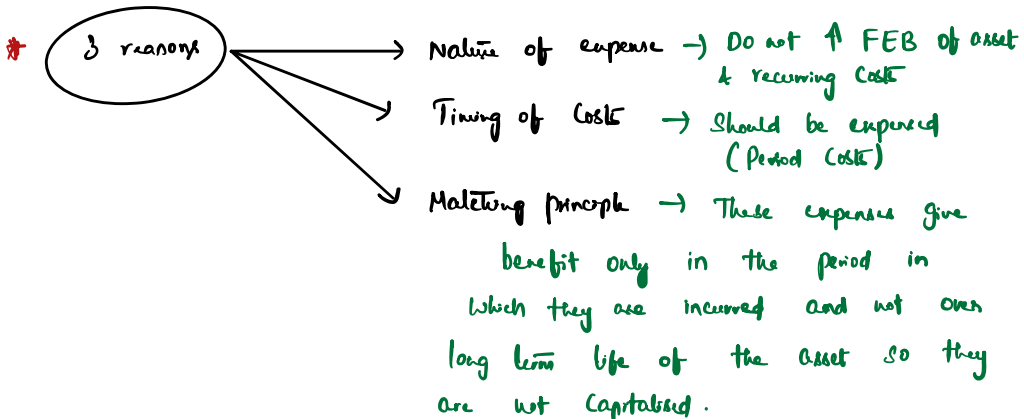 * 3 reasons
Nature of expense → Do not ↑ FEB of asset
& recurring costs
Timing of Costs → Should be expensed
(Period Costs)
Matching principle → These expenses give
benefit only in the period in
which they are incurred and not over
long term life of the asset so they
are not Capitalised.